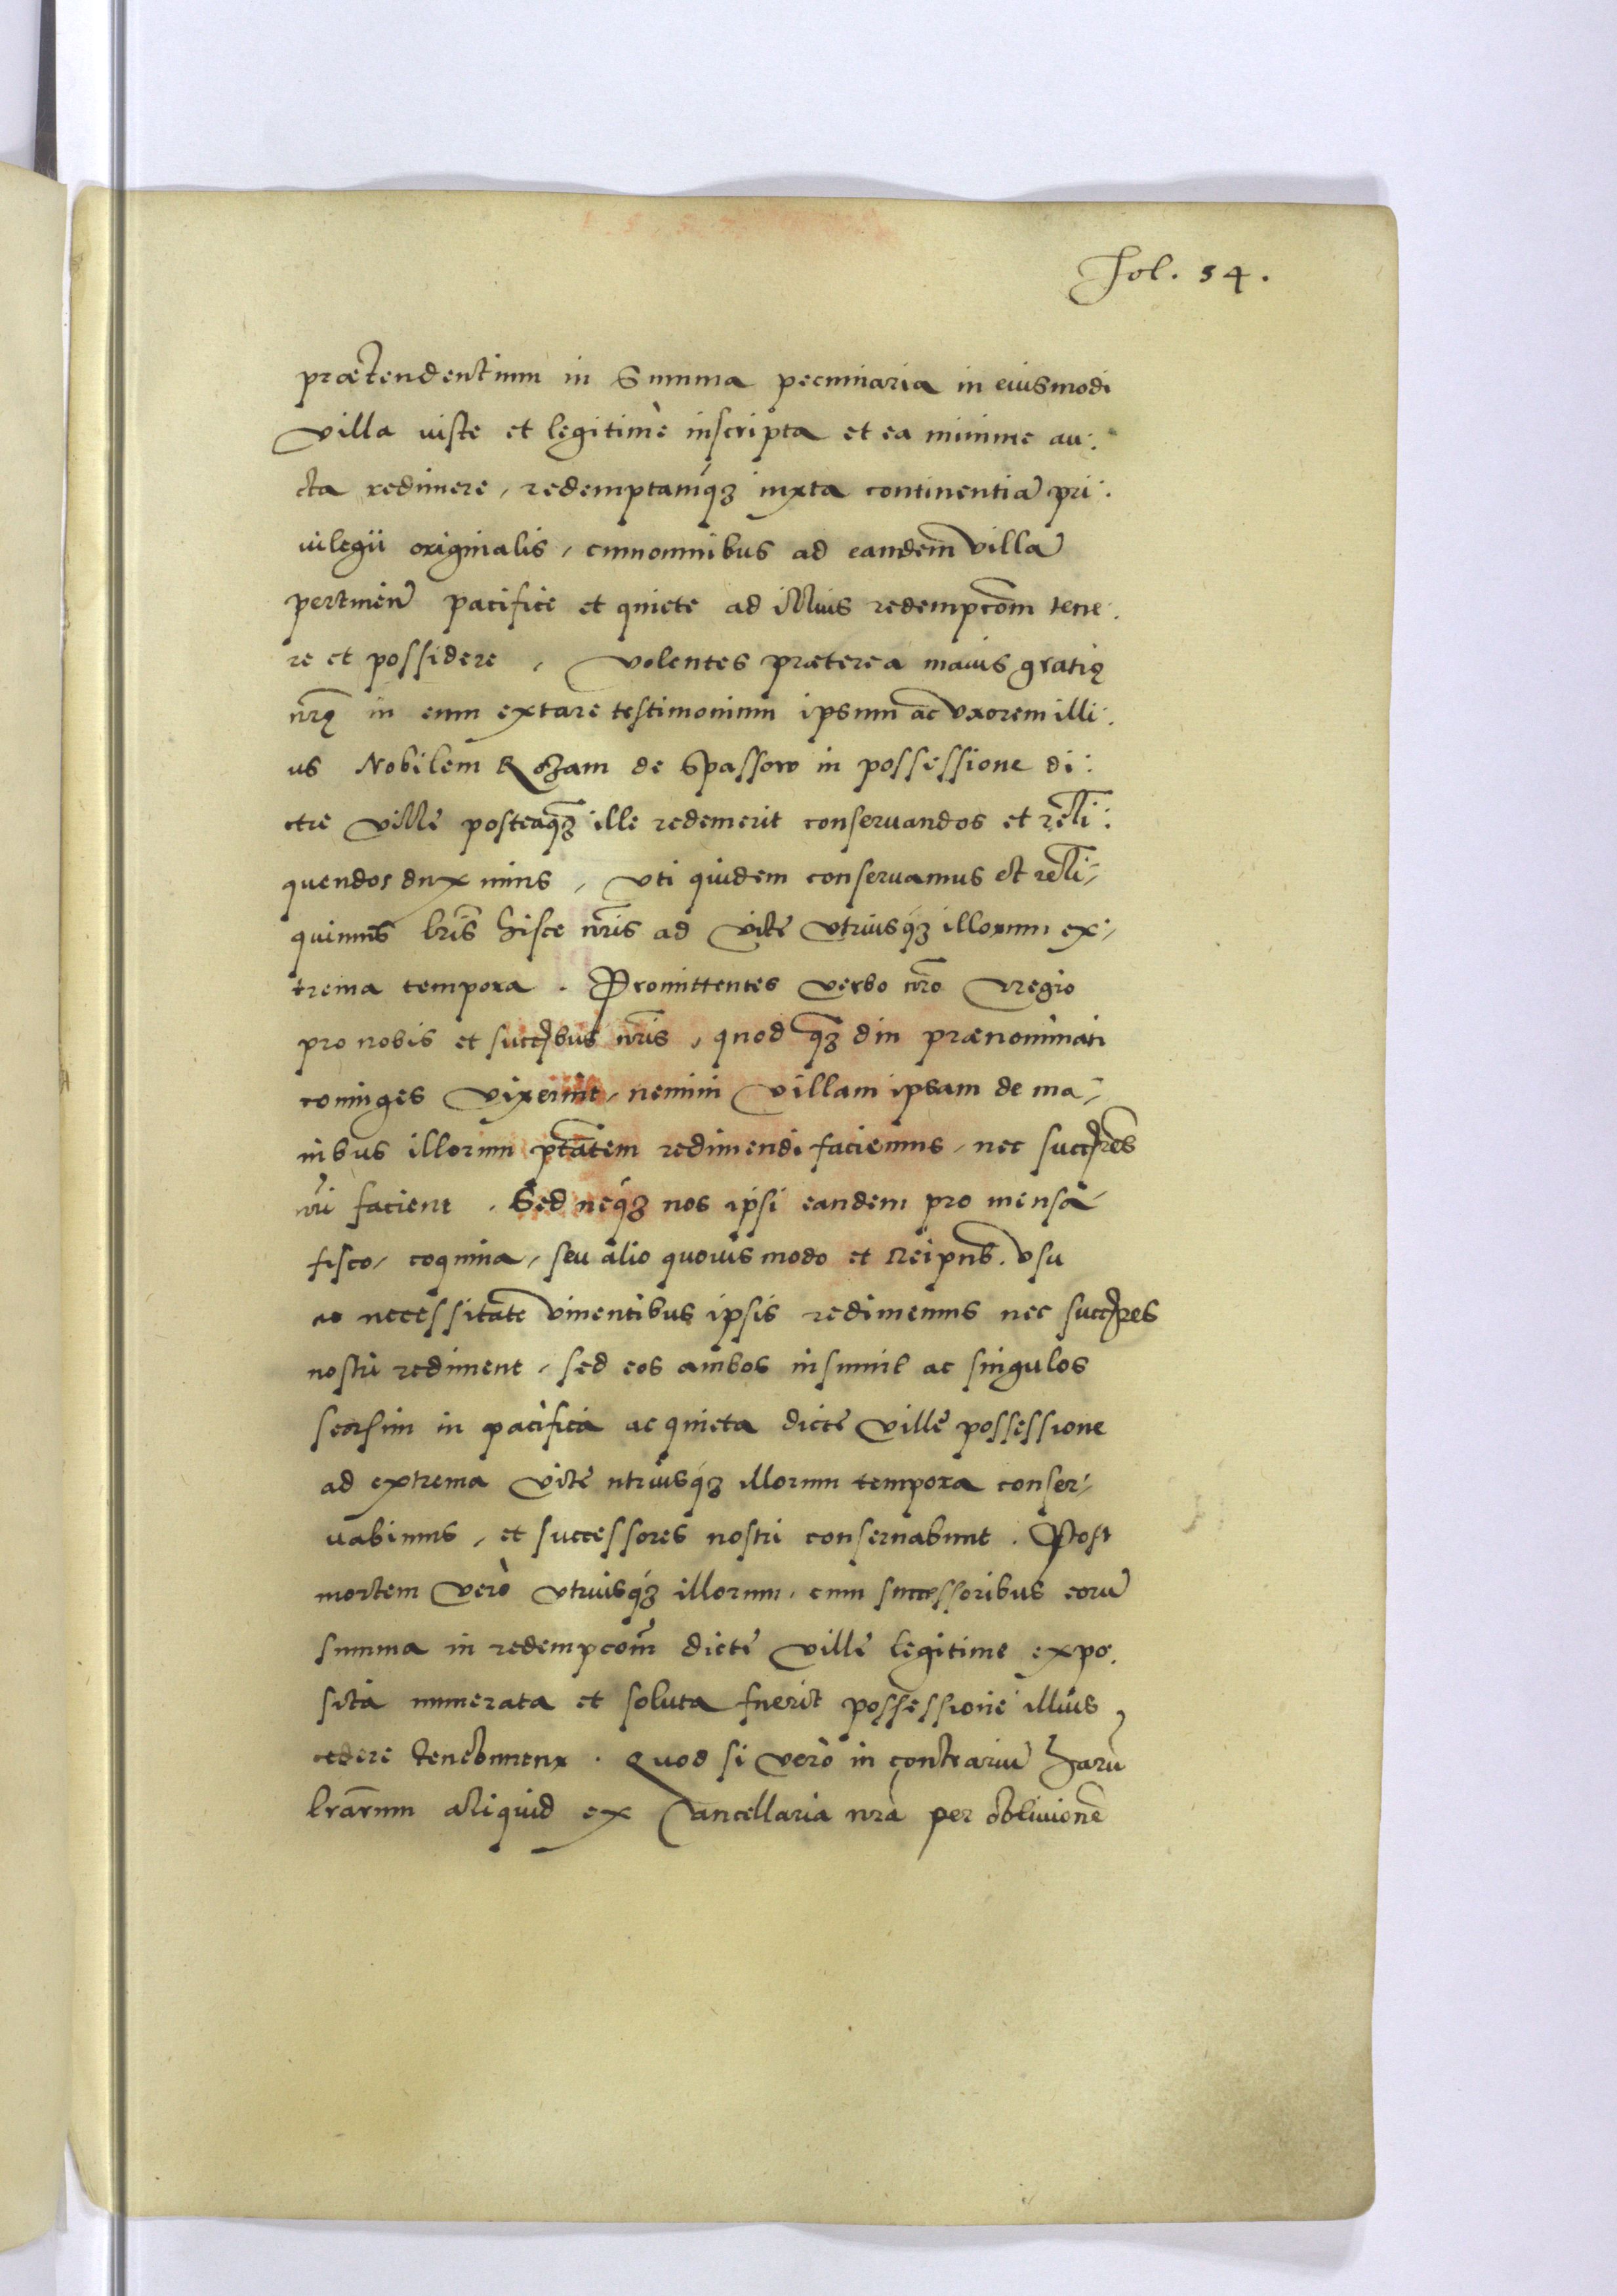 Fol. 54.
prætendentium in Summa pecuniaria in eiusmodi
Villa iuste et legitimè inscripta et ea minime au:
cta redimere, redemptamq́ꝫ iuxta continentiā pri:
uilegii originalis, cum omnibus ad eandem̄ villā
pertineñ pacifice et quiete ad illius redempcom̄ tene:
re et possidere, Volentes præterea maius gratię
nr̄ę in eum extare testimonium ipsum ac Vxorem illi:
us Nobilem Rozam de Spassow in possessione di:
cte Ville posteaq̄ꝫ ille redemerit conseruandos et reli:
quendos duximus, Vti quidem conseruamus et reli-
quimus lr̄is hisce nr̄is ad Vite Vtriusq́ꝫ illorum ex-
trema tempora. Promittentes Verbo nr̄o Regio
pro nobis et succ̄bus nr̄is, quod q̄ꝫ diu prænominati
coniuges Vixerint, nemini Villam ipsam de ma-
nibus illorum ptātem redimendi faciemus, nec succ̄res
nr̄i facient. Sed neq́ꝫ nos ipsi eandem pro mensa-
fisco, coquina, seu alio quouis modo et Reipub. Vsu
ac necessitate Viuentibus ipsis redimemus nec succ̄res
nostri rediment, sed eos ambos insimul ac singulos
seorsim in pacifica ac quieta dicte Ville possessione
ad extrema Vite utriusq́ꝫ illorum tempora conser-
uabimus, et successores nostri conseruabunt. Post
mortem Verò Vtriusq́ꝫ illorum, cum successoribus eorū
summa in redempcom̄ dicte Ville legitime expo:
sita numerata et soluta fuerit possessione illius
cedere tenebuntur. Quod si Verò in contrariū harū
lrārum aliquid ex Cancellaria nrā per obliuionē